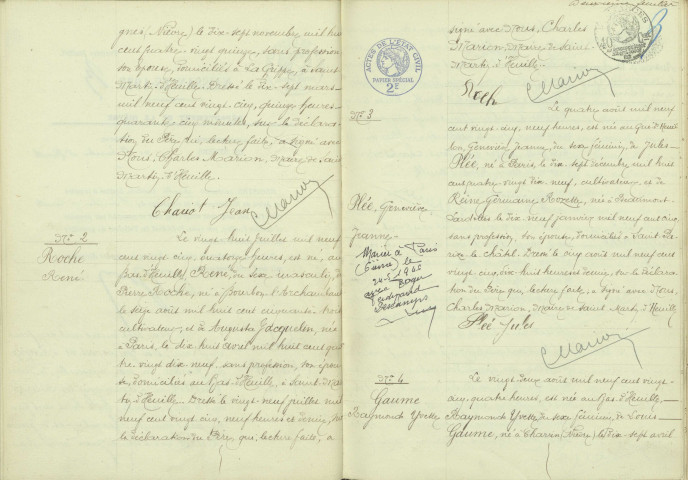 gnes (Nièvre) le dix-sept novembre mil huit
cent quatre-vingt quinze, sans profession
son épouse, domiciliés à La Grippe, à Saint
Martin d'Heuille. Dressé le dix-sept mars
mil neuf cent vingt-cinq, quinze heures
quarante cinq minutes, sur la déclara-
tion du Père qui, lecture faite, a signé avec
Nous, Charles Marion, Maire de Saint
Martin d'Heuille.
Chariot Jean
C Marion
No 2
Roché
René
Le vingt huit juillet mil neuf
cent vingt cinq, heures, est né, au
Bas-d'Heuille, René, du sexe masculin, de
Pierre Roche, né à Bourbon l'Archambault
le sept août mil huit cent
cultivateur, et de Augusta Jacquelin, née
à Paris, le dix-huit avril mil huit cent qua-
tre vingt dix-neuf, sans profession, son épou-
se, domiciliés au Bas-d'Heuille, à Saint-Mar-
tin d'Heuille. Dressé le vingt-neuf juillet mil
neuf cent vingt cinq, neuf heures et demie, sur
la déclaration du Père, qui, lecture faite, a
signé avec Nous, Charles
Marion, Maire de Saint-
Martin d'Heuille.
Roche
C Marion
ACTES DE L'ÉTAT CIVIL
PAPIER SPÉCIAL
2F
No 3
Plée, Geneviève
Jeanne
Marié à Paris
le
24-5-1945
avec
Le quatre août mil neuf
cent vingt-cinq, neuf heures, est née au Gué d'Heuil-
lon, Geneviève, Jeanne, du sexe féminin, de Jules
Plée, né à Paris, le dix-sept décembre mil huit
cent quatre vingt dix neuf, cultivateur, et de
Reine Germaine née à
le dix neuf janvier mil neuf cent cinq,
sans profession, son épouse, domiciliés à Saint-De-
nis le Dressé le cinq août mil neuf cent
vingt cinq, dix-huit heures demie, sur la déclara-
tion du Père qui, lecture faite, a signé avec Nous,
Charles Marion, Maire de Saint Martin d'Heuille
Plée Jules
C Marion
No 4
Gaume
Raymonde Yvette
Le vingt deux août mil neuf cent vingt-
cinq, quatre heures, est née au Bas d'Heuille,
Raymonde Yvette, du sexe féminin, de Louis
Gaume, né à Charrin (Nièvre) le dix-sept avril